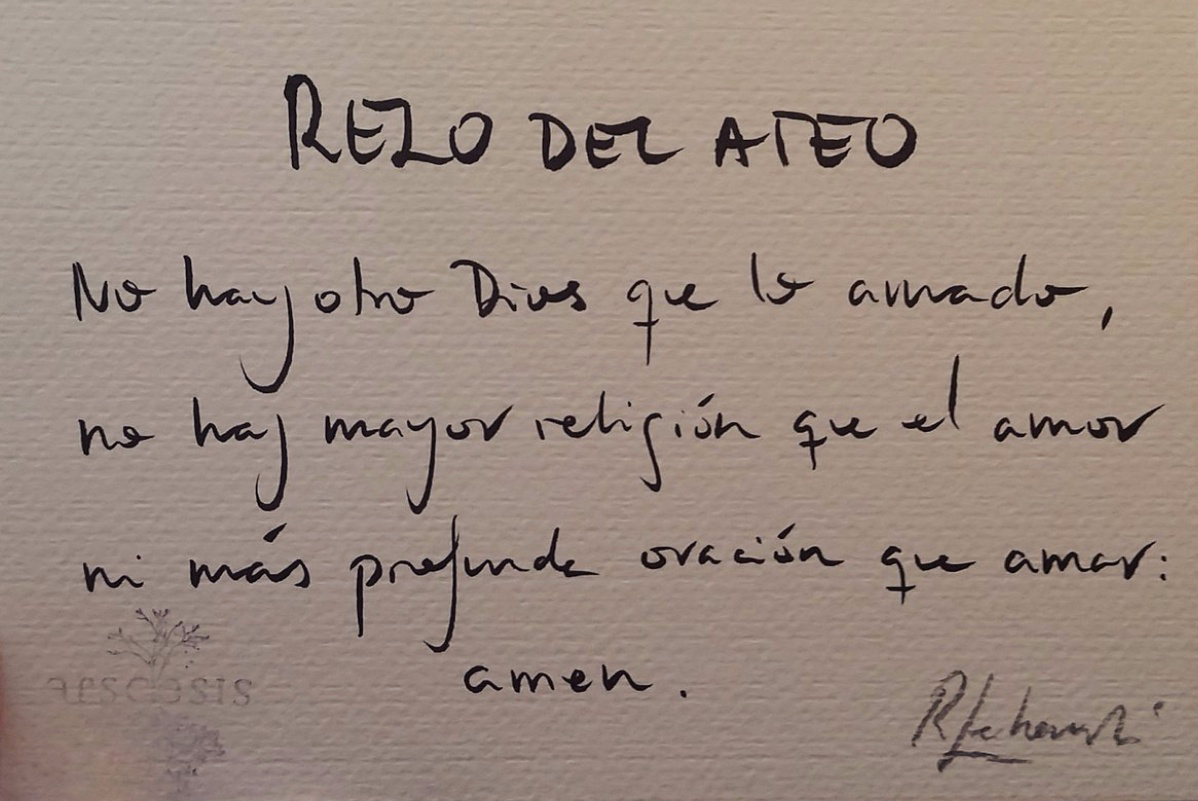 REZO DEL ATEO
No hay otro Dios que lo amado,
no hay mayor religión que el amor
ni más profunda oración que amar:
amen.